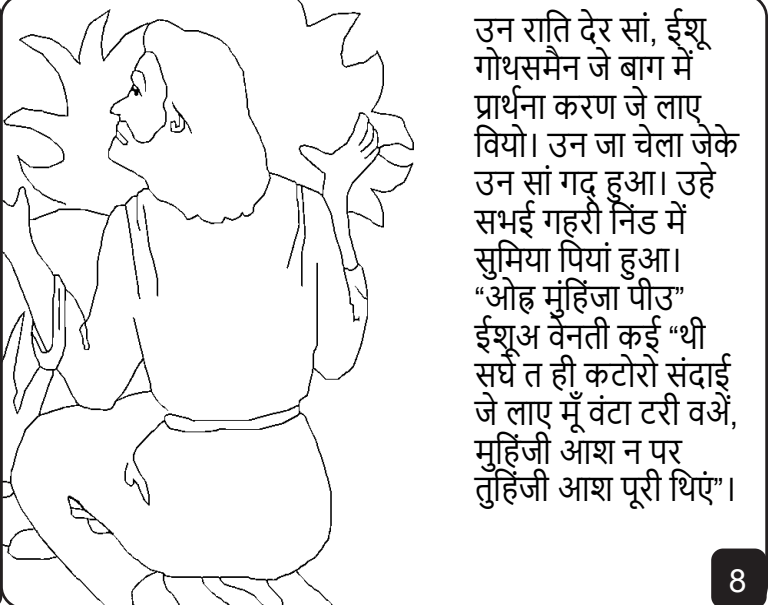 उन राति देर सां, ईशू
गोथसमैन जे बाग में
प्रार्थना करण जे लाए
वियो। उन जा चेला जेके
उन सां गद् हुआ। उहे
सभई गहरी निंड में
सुमिया पियां हुआ।
“ओह्र मुंहिंजा पीउ”
ईशूअ वेनती कई “थी
सघे त ही कटोरो संदाई
जे लाए मूँ वंटा टरी वञें,
मुहिंजी आश न पर
तुहिंजी आश पूरी थिएं”।
8